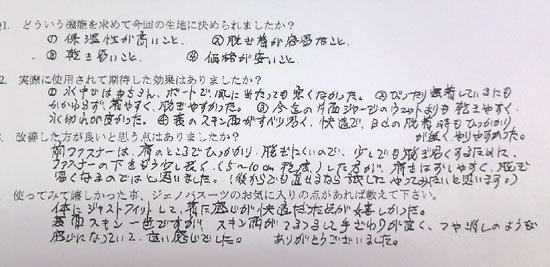 1. どういう機能を求めて今回の生地に決められましたか?
① 保温性が高いこと、② 脱き着が容易なこと、
③ 乾き易いこと ④ 価格が安いこと。
2. 実際に使用されて期待した効果はありましたか?
① 水中ではもちろん、ボートで、風に当たっても寒くなかった。② ぴったり密着しているにも
かかわらず、着やすく、脱ぎやすかった。③ 今までの片面ジャージのウェットよりも乾きやすく、
水切れが良かった。④ 表のスキン面がすべり易く、快適で、BCDの脱着時もひっかかり
が無く、やりやすかった。
改善した方が良いと思う点はありましたか?
前ファスナーは、肩のところでひっかかり、脱ぎにくいので、少しでも脱ぎ易くするために、
ファスナーの下をもう少し長く(5〜10cm程度)した方が、肩をはずしやすく、脱ぎ
易くなるのではと思いました。(後からでも直せるなら試しにやってみたいと思います。)
使ってみて嬉しかった事、ジェノバスーツのお気に入りの点があれば教えて下さい。
体にジャストフィットして、着た感じが快適だった点が嬉しかった。
表面スキン一色ですが、スキン面がツルツルして手ざわりが良く、つや消しのような
感じになっていて、良い感じでした。 ありがとうございました。